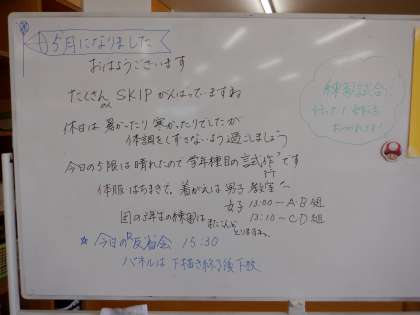 5月になりました
おはようございます
たくさんのSKIPがんばっていますね
休日は暑かったり寒かったりでしたが
体調をくずさないよう過ごしましょう
今日の5限は晴れたので学年種目の試作です
体服はちまきで。着がえは男子教室へ
女子 13:00〜A・B組
13:10〜C・D組
団の3年生の練習は
☆ 今日の反省会 15:30
パネルは下描き終了後下校
練習試合に